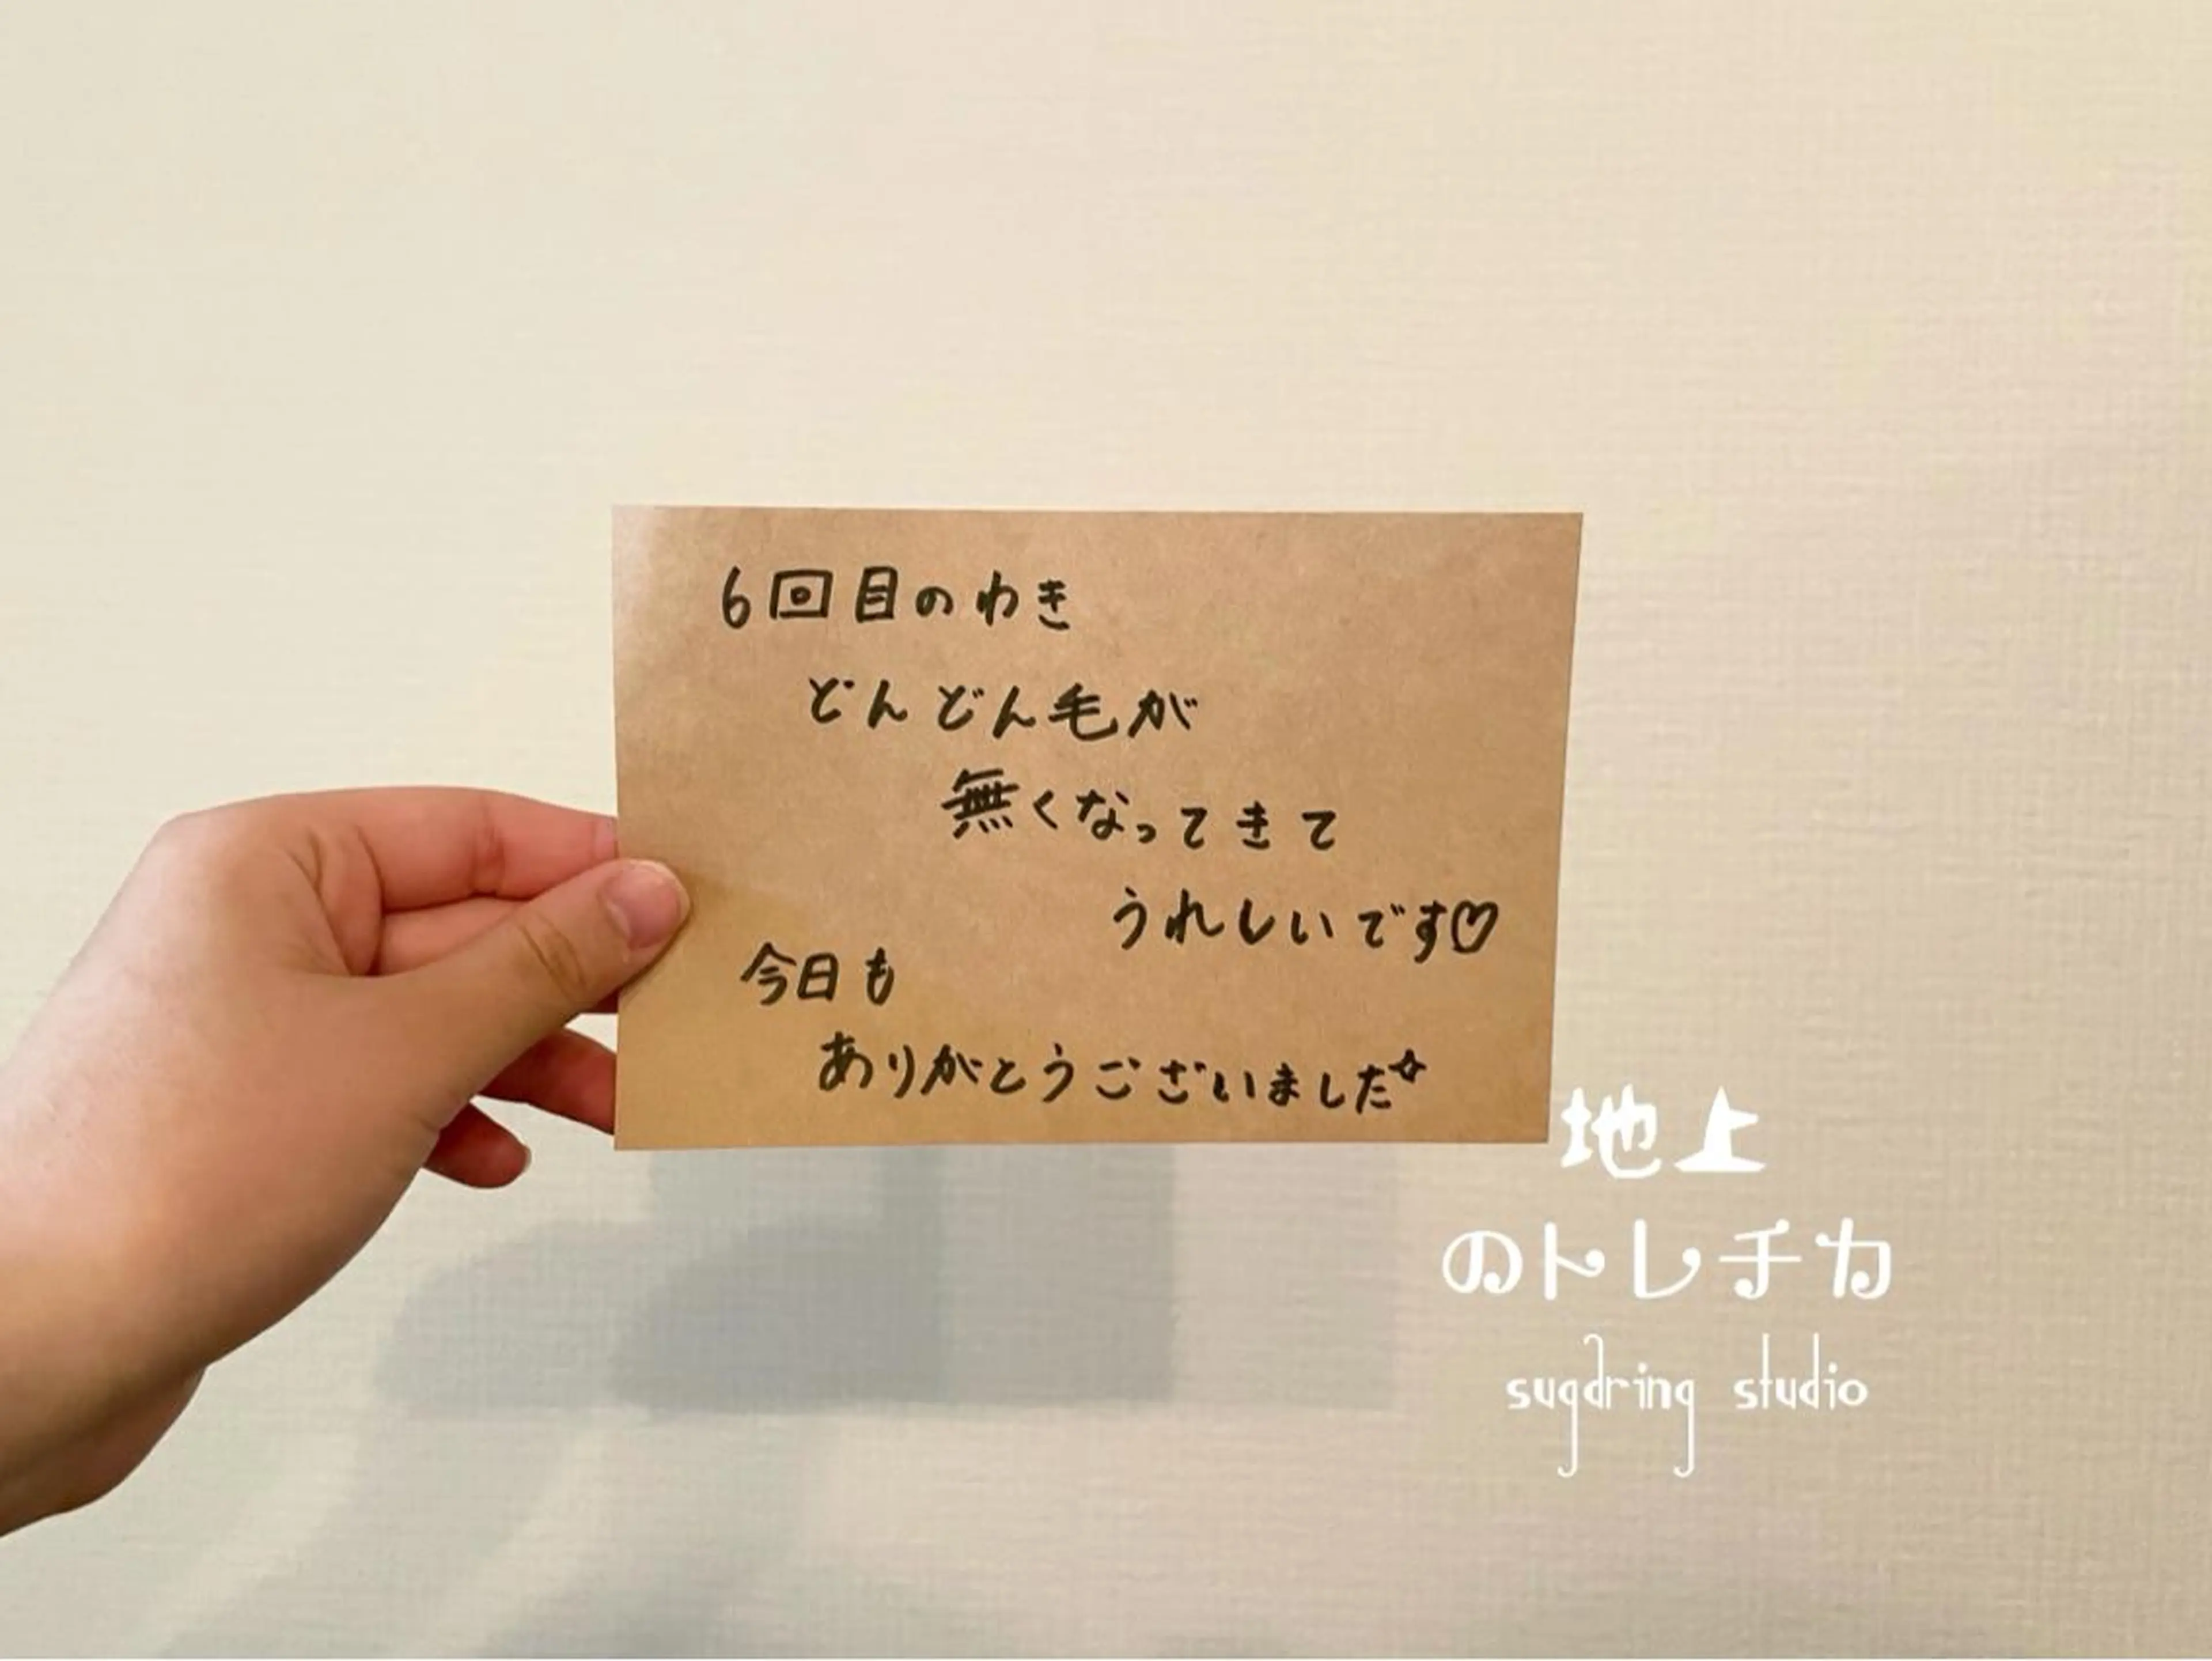 6回目のわき
どんどん毛が
無くなってきて
うれしいです♡
今日も
ありがとうございました☆
地上
のトレチカ
sugaring studio